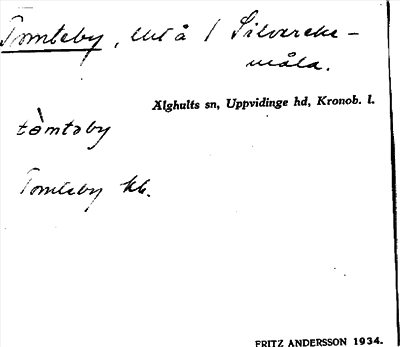 Tomteby, lht å / Silvereke-
måla.
Älghults sn, Uppvidinge hd, Kronob. l.
tòmtəby
Tomteby kb.
FRITZ ANDERSSON 1934.